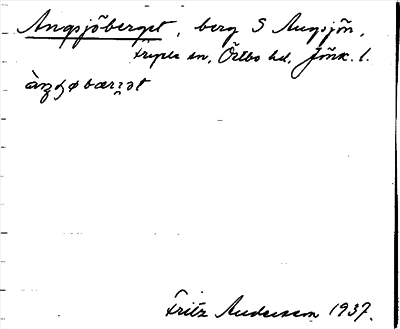 Angsjöberget, berg S Angsjön,
sn, Östbo hd, Jönk. l.
Fritz Andersson 1937.